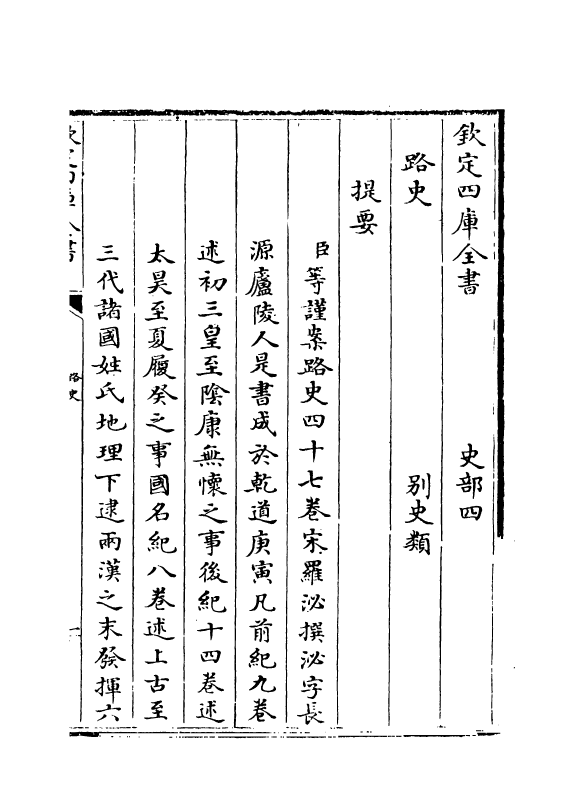 欽定四庫全書 史部四
路史 别史類
提要
臣等謹案路史四十七巻宋羅泌撰泌字長
源廬陵人是書成於乾道庚寅凡前紀九巻
述初三皇至陰康無懷之事後紀十四巻述
太昊至夏履癸之事國名紀八巻述上古至
三代諸國姓氏地理下逮兩漢之末發揮六
路史